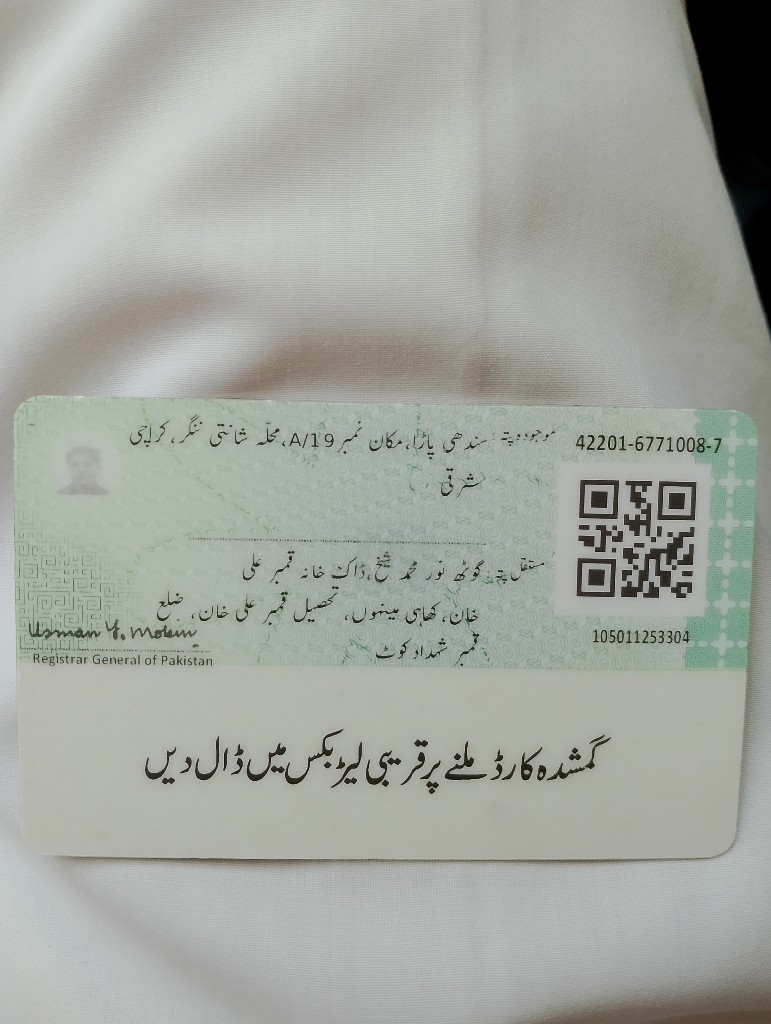 موجودہ پتہ: سندھی پاڑا، مکان نمبر A/19، محلہ شانتی نگر، کراچی
شرقی
42201-6771008-7
مستقل پتہ: گوٹھ نور محمد شیخ، ڈاک خانہ قمبر علی
خان، کھاہی مینہوں، تحصیل قمبر علی خان، ضلع
قمبر شہداد کوٹ
105011253304
Usman Y. Mobin
Registrar General of Pakistan
گمشدہ کارڈ ملنے پر قریبی لیٹر بکس میں ڈال دیں